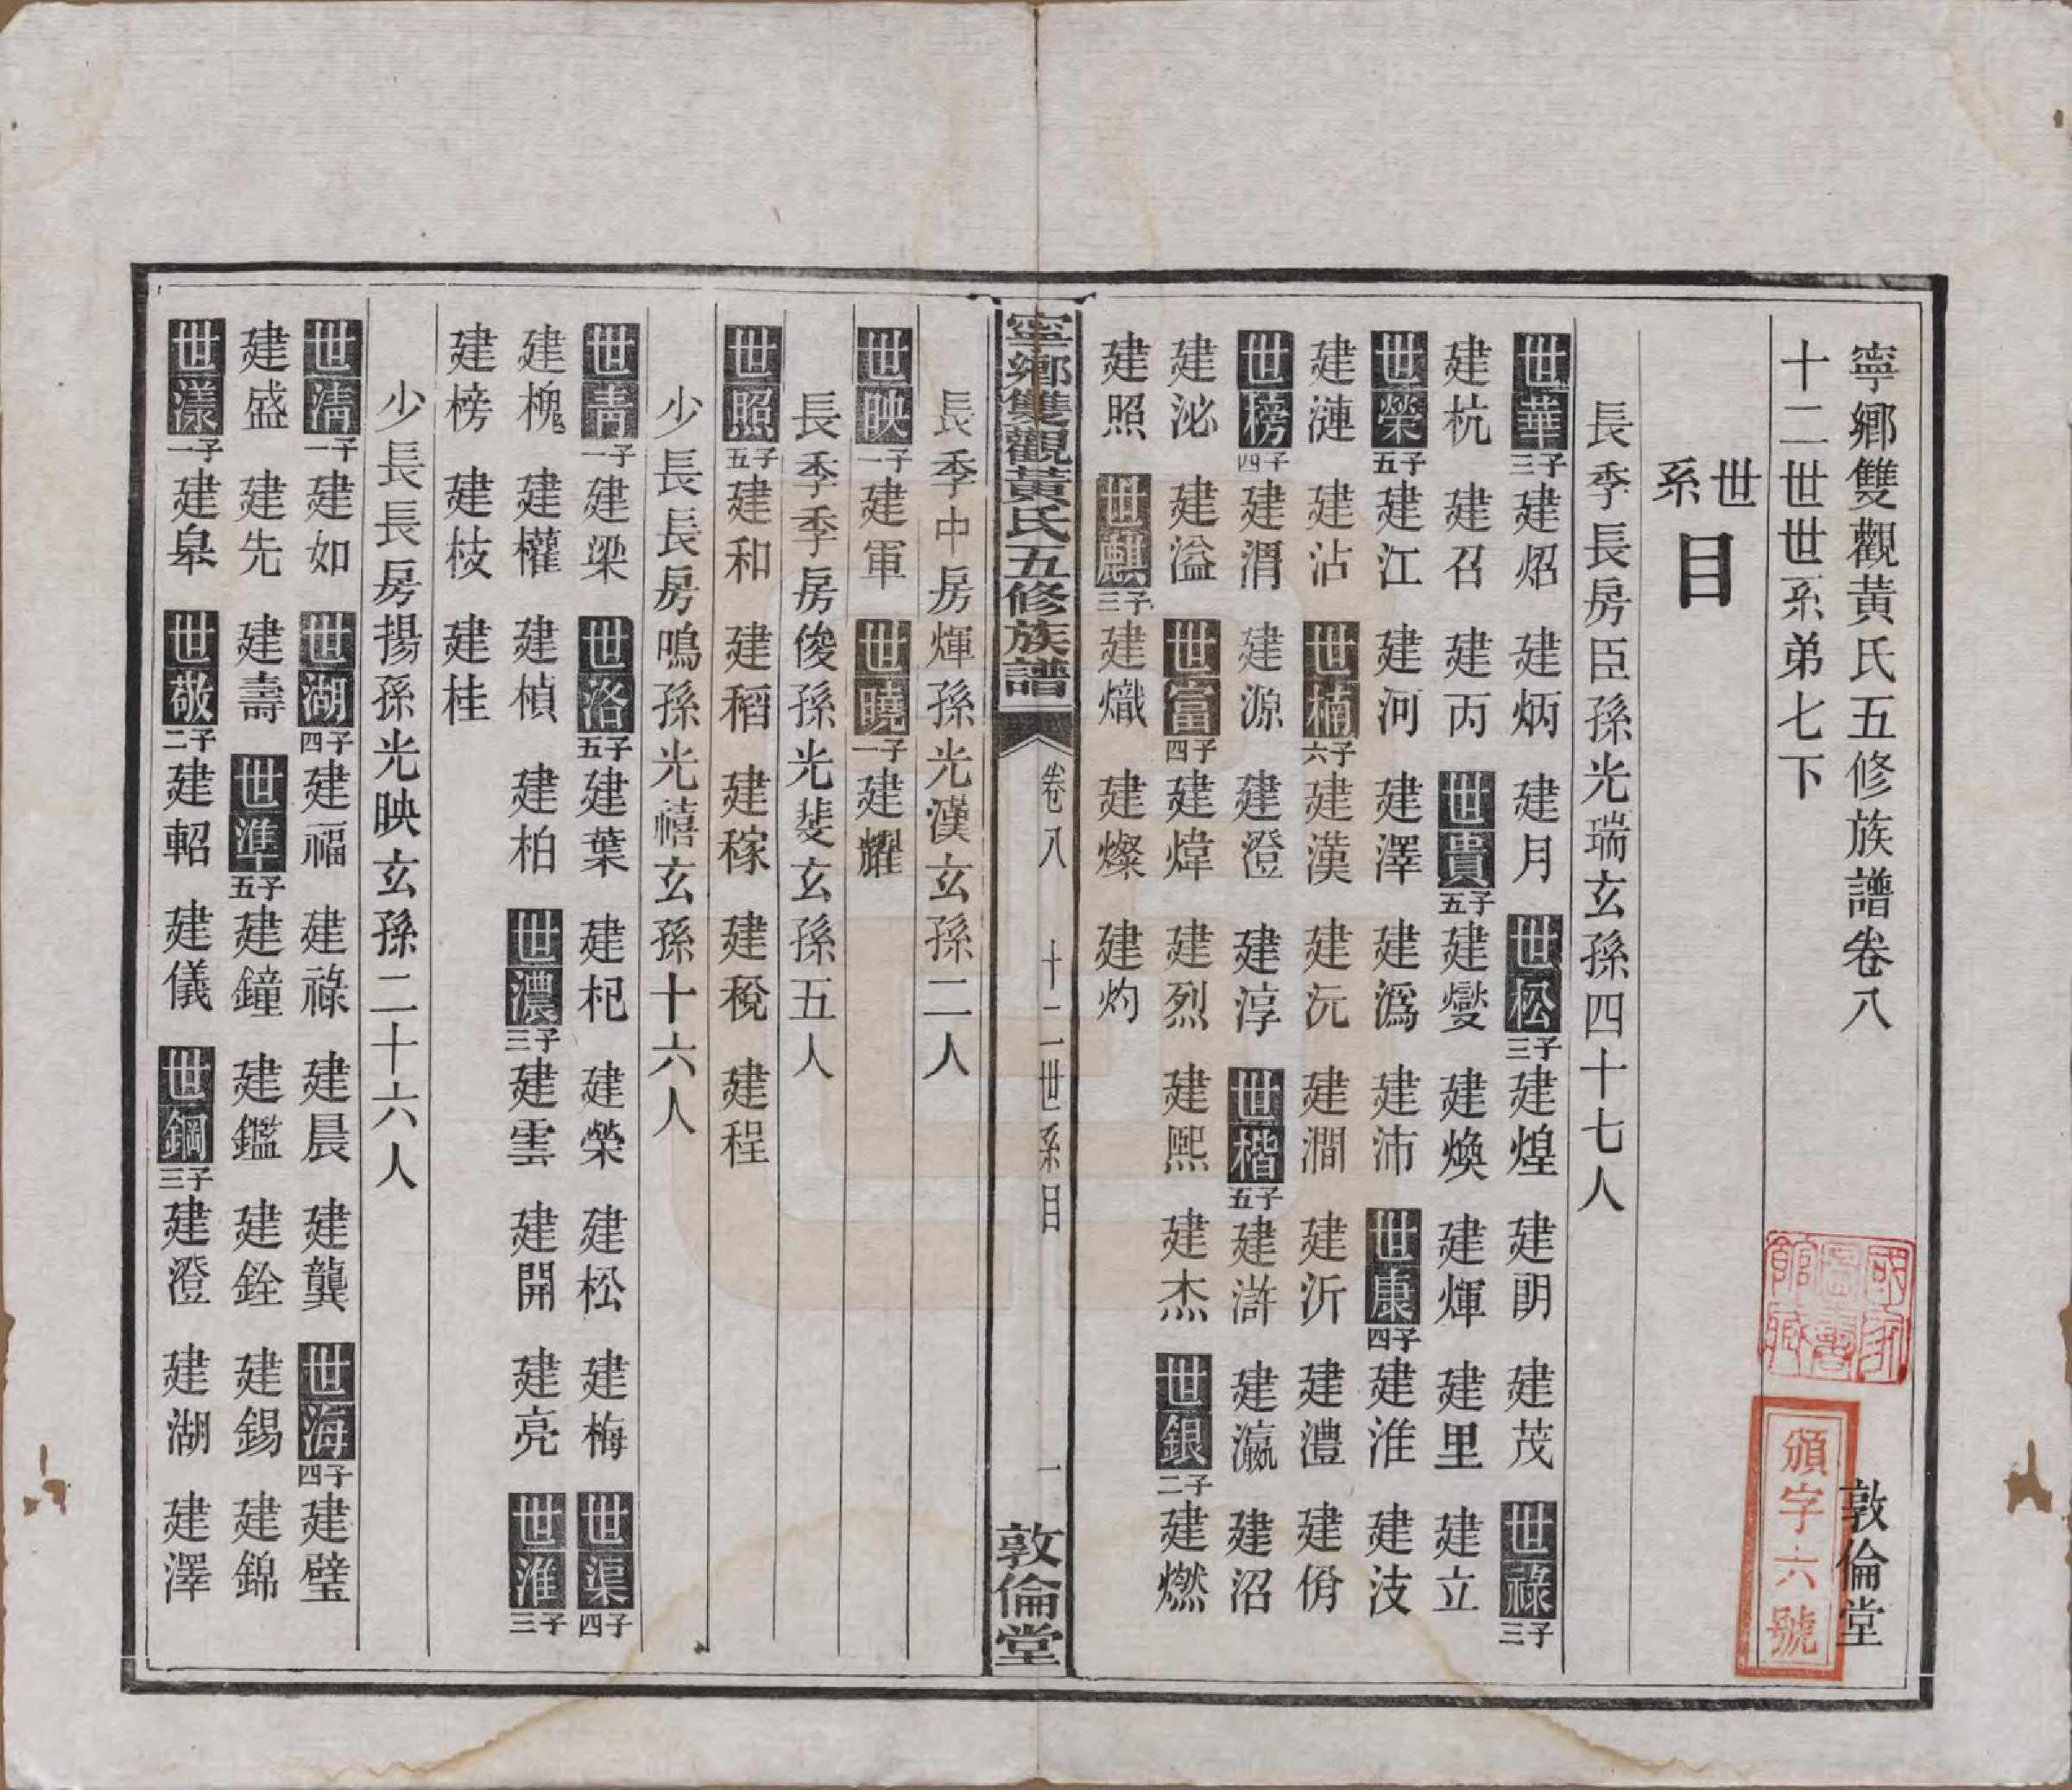 寧鄉雙觀黃氏五修族譜卷八 敦倫堂
十二世世系弟七下
世系目
長季長房臣孫光瑞玄孫四十七人
世華三子 建炤 建炳 建月 世松三子 建煌 建朗 建茂 世祿三子
建杭 建召 建丙 世貴五子 建燮 建煥 建輝 建里 建立
世榮五子 建江 建河 建澤 建溈 建沛 世康四子 建淮 建汥
建漣 建沾 世楠六子 建漢 建沅 建澗 建沂 建澧 建脩
世榜四子 建渭 建源 建澄 建淳 世楷五子 建滸 建瀛 建沼
建泌 建溢 世富四子 建煒 建烈 建熙 建杰 世銀二子 建燃
建照 世麒三子 建熾 建燦 建灼
寧鄉雙觀黃氏五修族譜 卷八 十二世系目 一 敦倫堂
長季中房煇孫光漢玄孫二人
世映一子 建軍 世曉一子 建耀
長季季房俊孫光斐玄孫五人
世照五子 建和 建稻 建稼 建稅 建程
少長長房鳴孫光禧玄孫十六人
世青一子 建梁 世洛五子 建葉 建杞 建榮 建松 建梅 世渠四子
建槐 建權 建楨 建柏 世濃三子 建雲 建開 建亮 世淮三子
建榜 建枝 建桂
少長長房揚孫光映玄孫二十六人
世清一子 建如 世湖四子 建福 建祿 建晨 建龔 世海四子 建璧
建盛 建先 建壽 世準五子 建鐘 建鑑 建銓 建錫 建錦
世漾一子 建皋 世敬二子 建軺 建儀 世鋼三子 建澄 建湖 建澤
國家圖書館藏
頒字六號